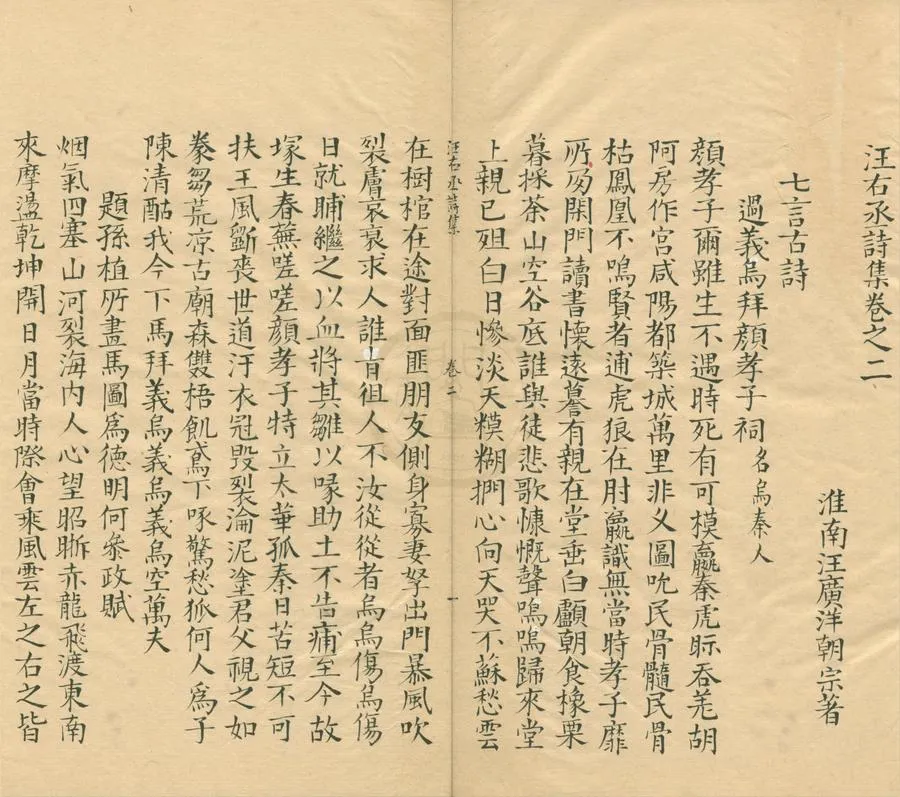 汪右丞詩集卷之二
淮南汪廣洋朝宗著
七言古詩
過義烏拜顔孝子祠名烏秦人
顔孝子爾雖生不遇時死有可模嬴秦虎眎吞羌胡
阿房作宮咸陽都築城萬里非乂圖吮民骨髓民骨
枯鳳凰不鳴賢者逋虎狼在肘嬴識無當時孝子靡
所曷閑門讀書懷遠謩有親在堂垂白顱朝食橡栗
暮採荼山空谷底誰與徒悲歌慷慨聲嗚嗚歸來堂
上親已殂白日慘淡天糢糊捫心向天哭不蘇愁雲
汪右丞詩集
卷二
一
在樹棺在途對面匪朋友側身寡妻孥出門暴風吹
裂膚哀哀求人誰肯徂人不汝從從者烏烏傷烏傷
日就晡繼之以血將其雛以喙助土不告痡至今故
塚生春蕪嗟嗟顔孝子特立太華孤秦日苦短不可
扶王風斵喪世道汙衣冠毁裂淪泥塗君父視之如
豢芻荒凉古廟森雙梧飢鳶下啄驚愁狐何人爲子
陳清酤我今下馬拜義烏義烏義烏空萬夫
題孫植所畫馬圖爲德明何叅政賦
烟氣四塞山河裂海内人心望昭晰赤龍飛渡東南
來摩盪乾坤開日月當時際會乘風雲左之右之皆